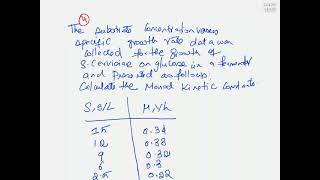 4
The Substrate Concentration versus
specific growth rate data was
collected for the growth of
S. Cerviciae on glucose in a fermenter
and presented as follows.
Calculate the Monod Kinetic Constants.
S, g/L μ, 1/h
15 0.34
12 0.33
9 0.32
6 0.3
0.22